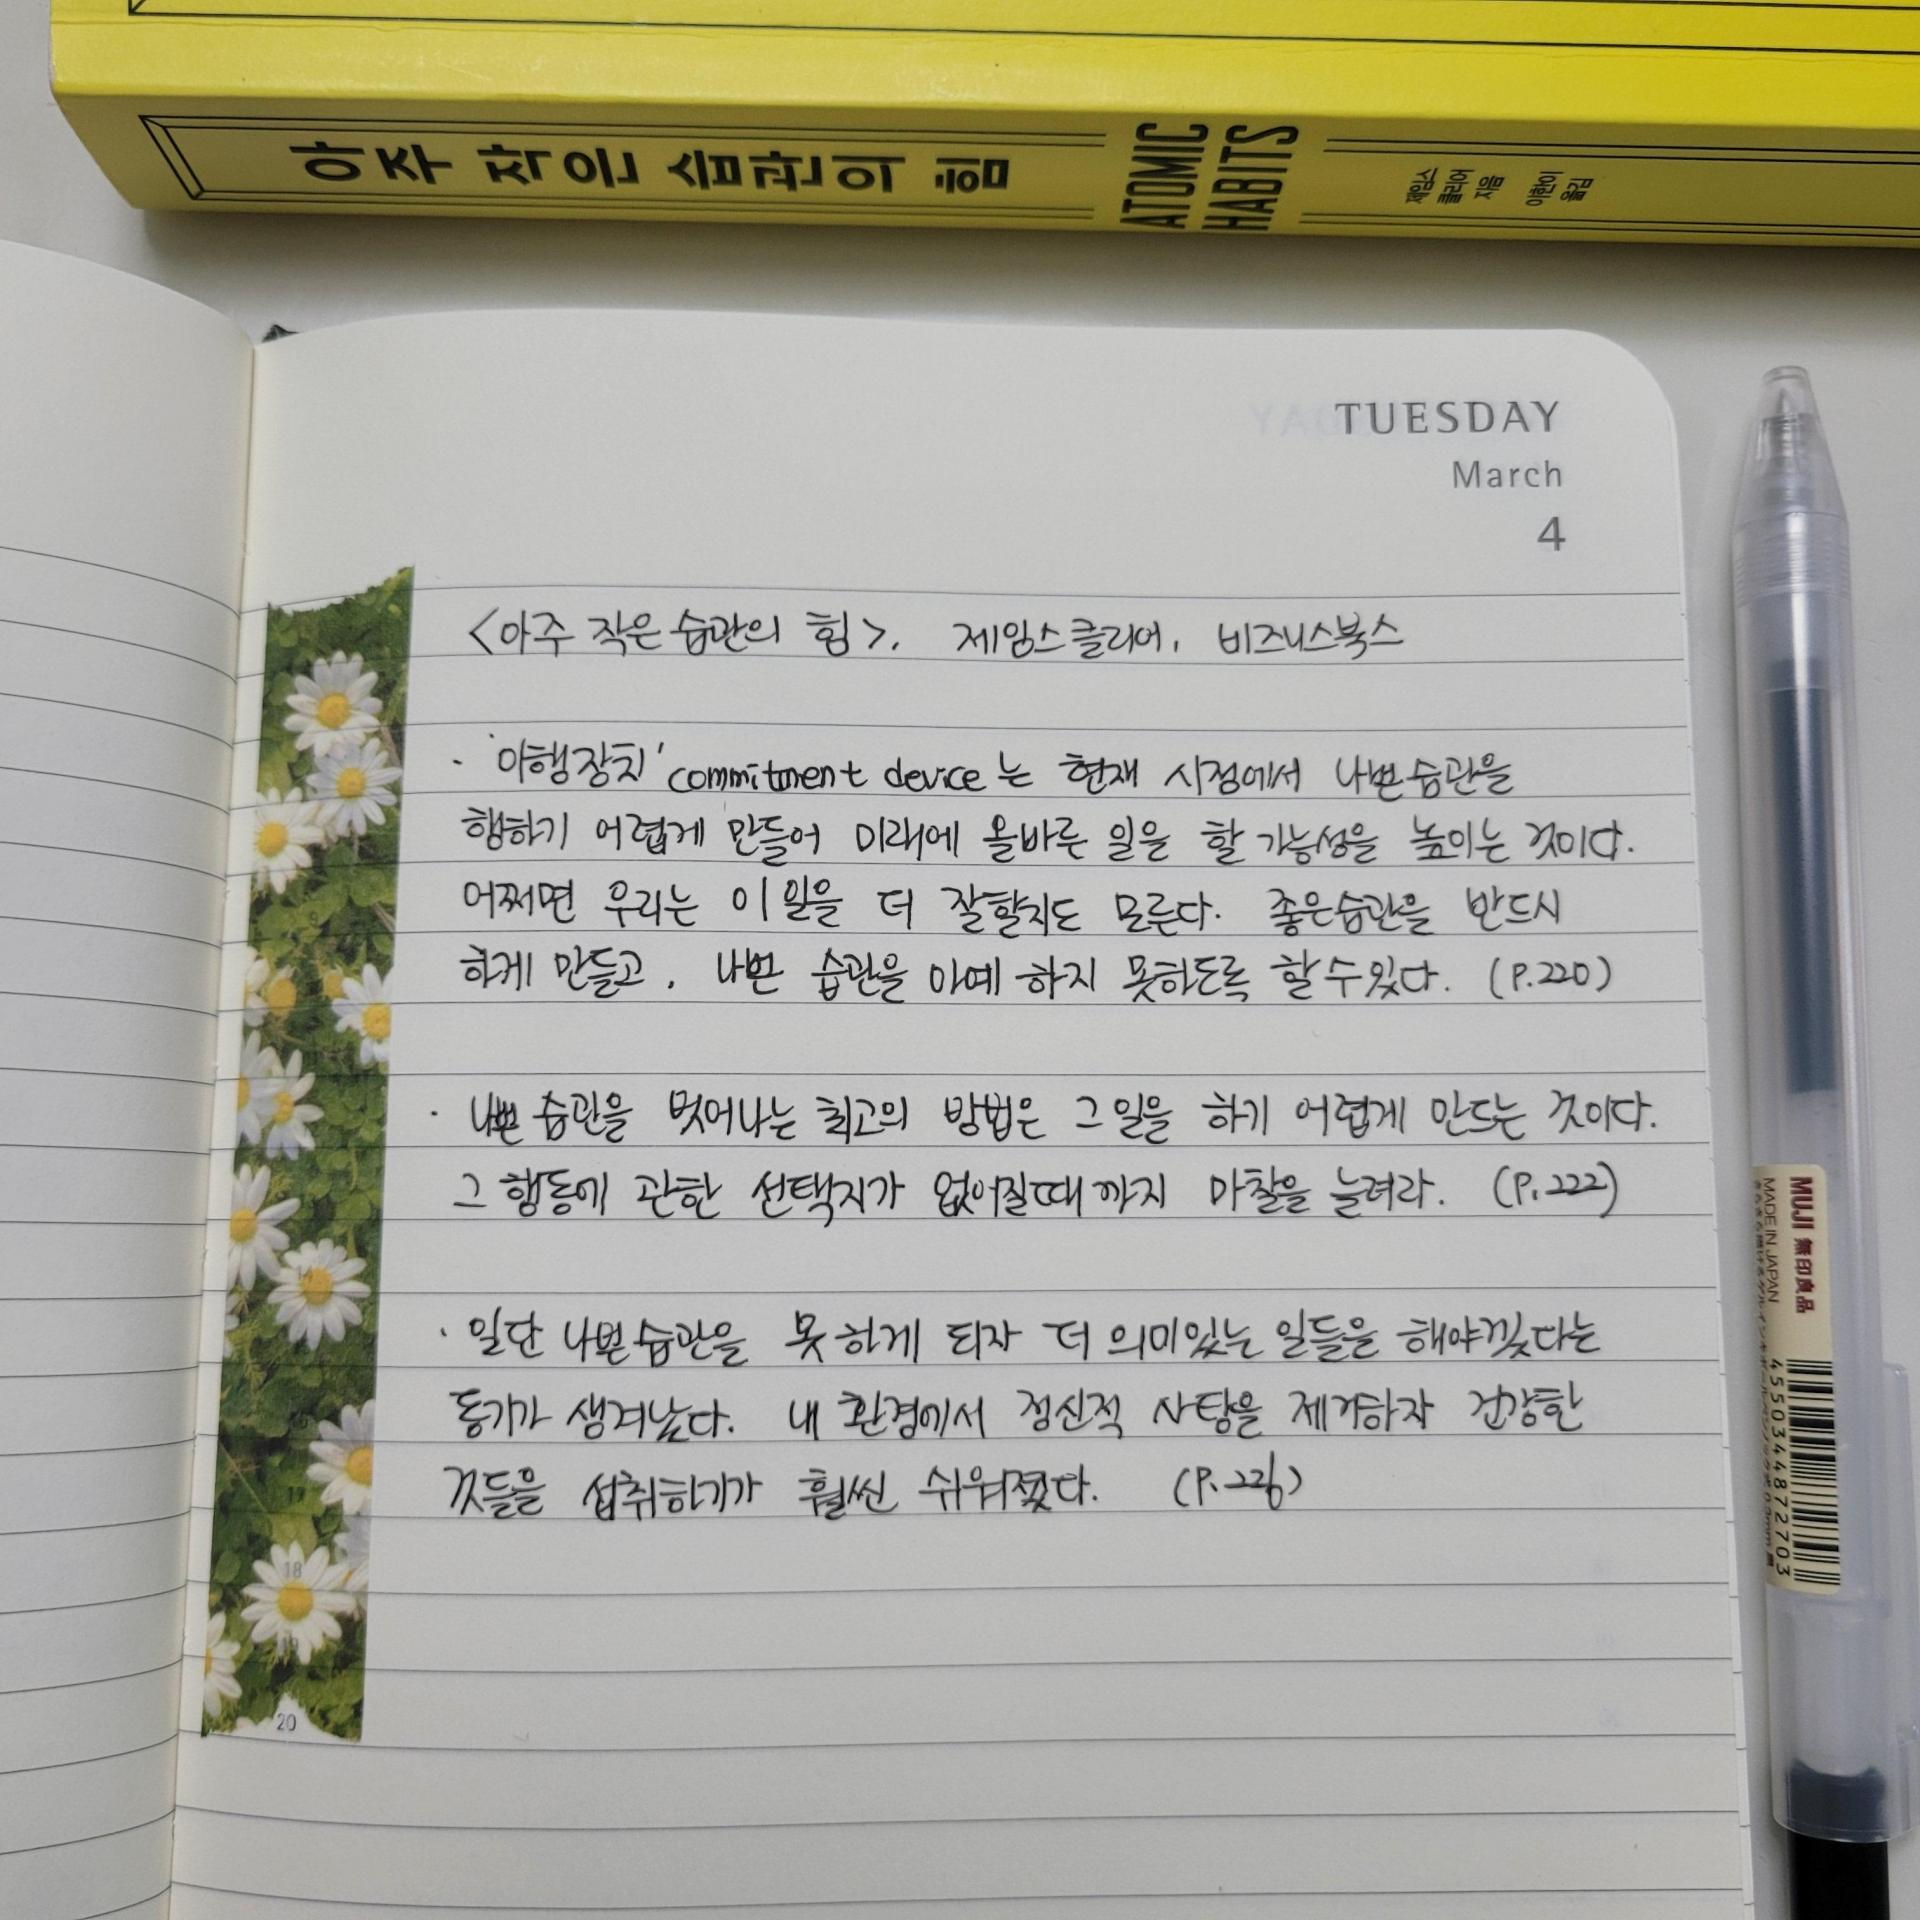 아주 작은 습관의 힘
ATOMIC
HABITS
제임스
클리어
지음
이한이
옮김
TUESDAY
March
4
<아주 작은 습관의 힘>. 제임스클리어, 비즈니스북스
· '이행장치' commitment device는 현재 시점에서 나쁜습관을
행하기 어렵게 만들어 미래에 올바른 일을 할 가능성을 높이는 것이다.
어쩌면 우리는 이 일을 더 잘할지도 모른다. 좋은습관을 반드시
하게 만들고, 나쁜 습관을 아예 하지 못하도록 할 수 있다. (P.220)
· 나쁜 습관을 벗어나는 최고의 방법은 그 일을 하기 어렵게 만드는 것이다.
그 행동에 관한 선택지가 없어질때까지 마찰을 늘려라. (P.222)
· 일단 나쁜습관을 못하게 되자 더 의미있는 일들을 해야겠다는
동기가 생겨났다. 내 환경에서 정신적 사탕을 제거하자 건강한
것들을 섭취하기가 훨씬 쉬워졌다. (P.226)
18
19
20
MUJI 無印良品
MADE IN JAPAN
4550344872703